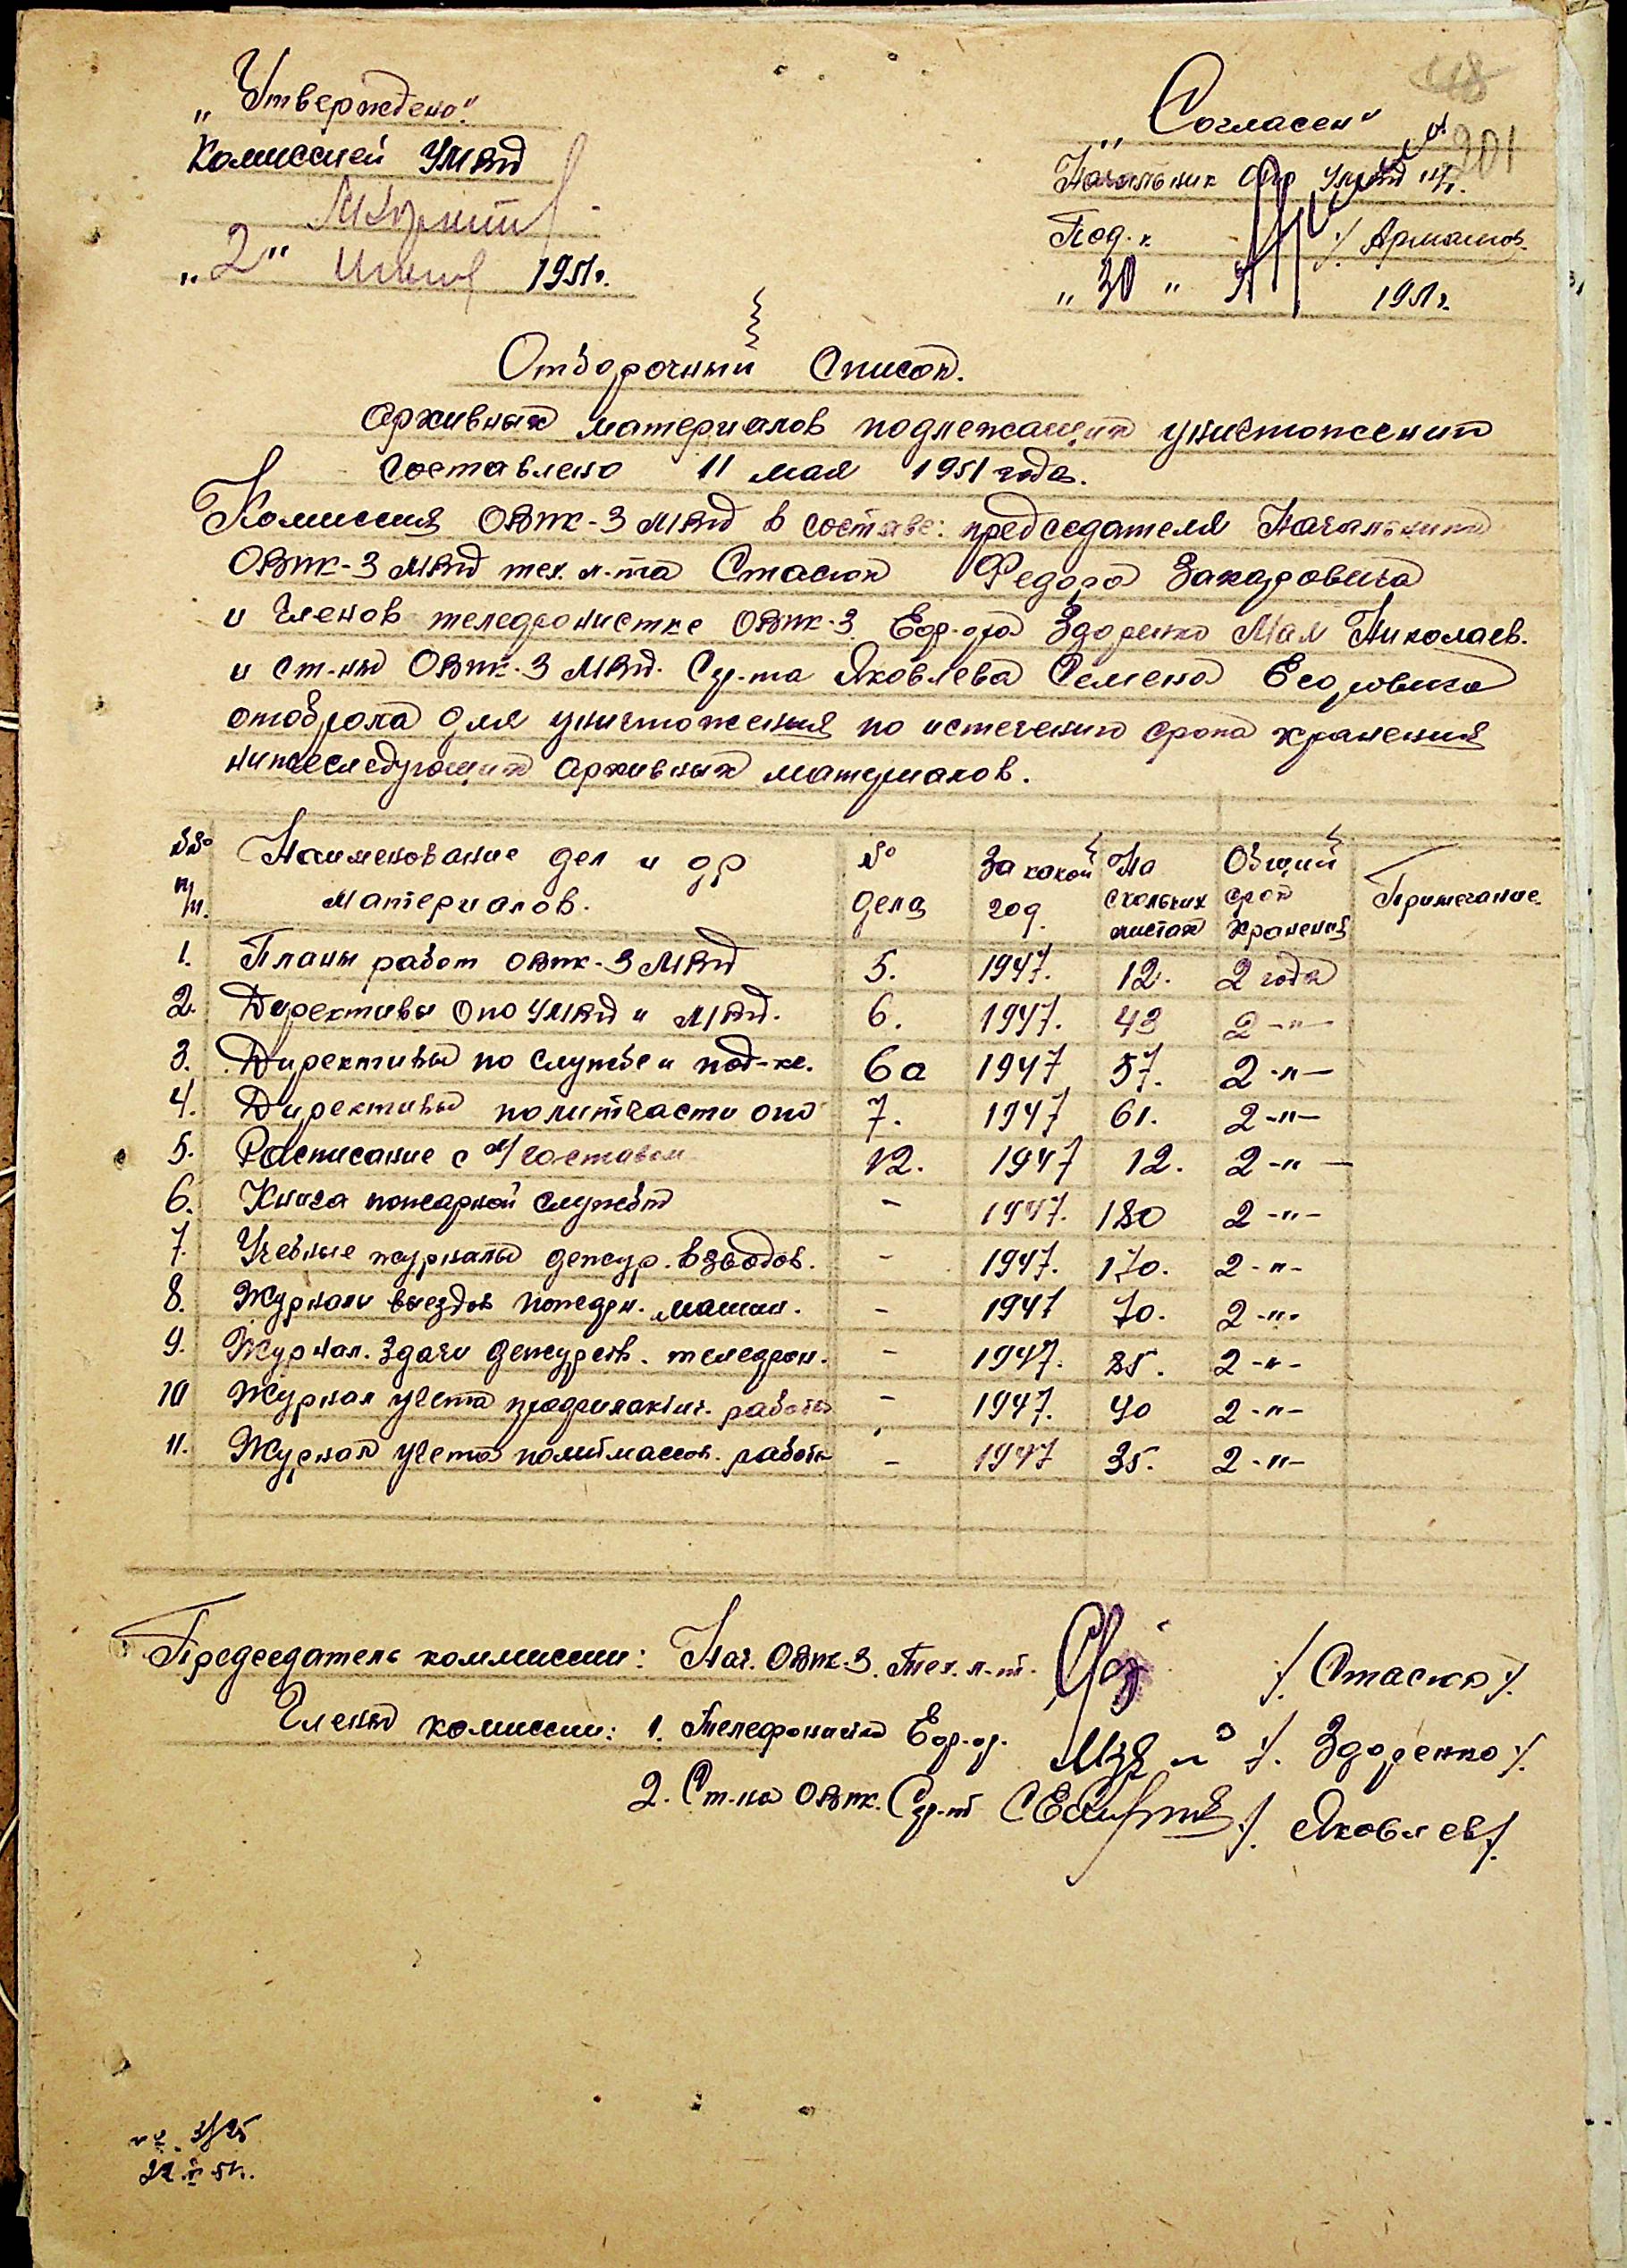 „Утверждено"
Комиссией УМВД
„2" июня 1951г.
„Согласен"
Начальник УМВД
Под. к /Армашов
„30" 1951г.
201
Отборочный список.
архивных материалов подлежащих уничтожению
составлено 11 мая 1951 года.
Комиссия ОВПК-3 МВД в составе: председателя Начальника
ОВПК-3 МВД тех. л-та Стасюк Федора Захаровича
и членов телефонистке ОВПК-3 Еф-ора Здоренко Мал Николаев.
и ст-на ОВПК-3 МВД. Сер-та Яковлева Семена Егоровича
отобрала для уничтожения по истечению срока хранения
нижеследующих архивных материалов.
№№ п/п. Наименование дел и др материалов. № дела За какой год. На скольких листах Общий срок хранения Примечание.
1. Планы работ ОВПК-3 МВД 5. 1947. 12. 2 года
2. Директивы ОПО УМВД и МВД. 6. 1947. 43 2 -"-
3. Директивы по службе и под-ке. 6а 1947 57. 2 -"-
4. Директивы политчасти ОПО 7. 1947 61. 2 -"-
5. Расписание с л/составом 12. 1947 12. 2 -"-
6. Книга пожарной службы - 1947. 180 2 -"-
7. Учебные журналы дежур. взводов. - 1947. 170. 2 -"-
8. Журналы выездов пожарн. машин. - 1947 70. 2 -"-
9. Журнал. здачи дежурств. телефон. - 1947. 85. 2 -"-
10 Журнал учета профилактич. работы - 1947. 40 2 -"-
11. Журнал учета политмассов. работы - 1947 35. 2 -"-
Председатель коммиссии: Нач. ОВПК-3. Тех. л-т. /Стасюк/.
Члены комиссии: 1. Телефонистка Еф-ор. /. Здоренко/.
2. Ст-на ОВПК. Сер-т /. Яковлев/.